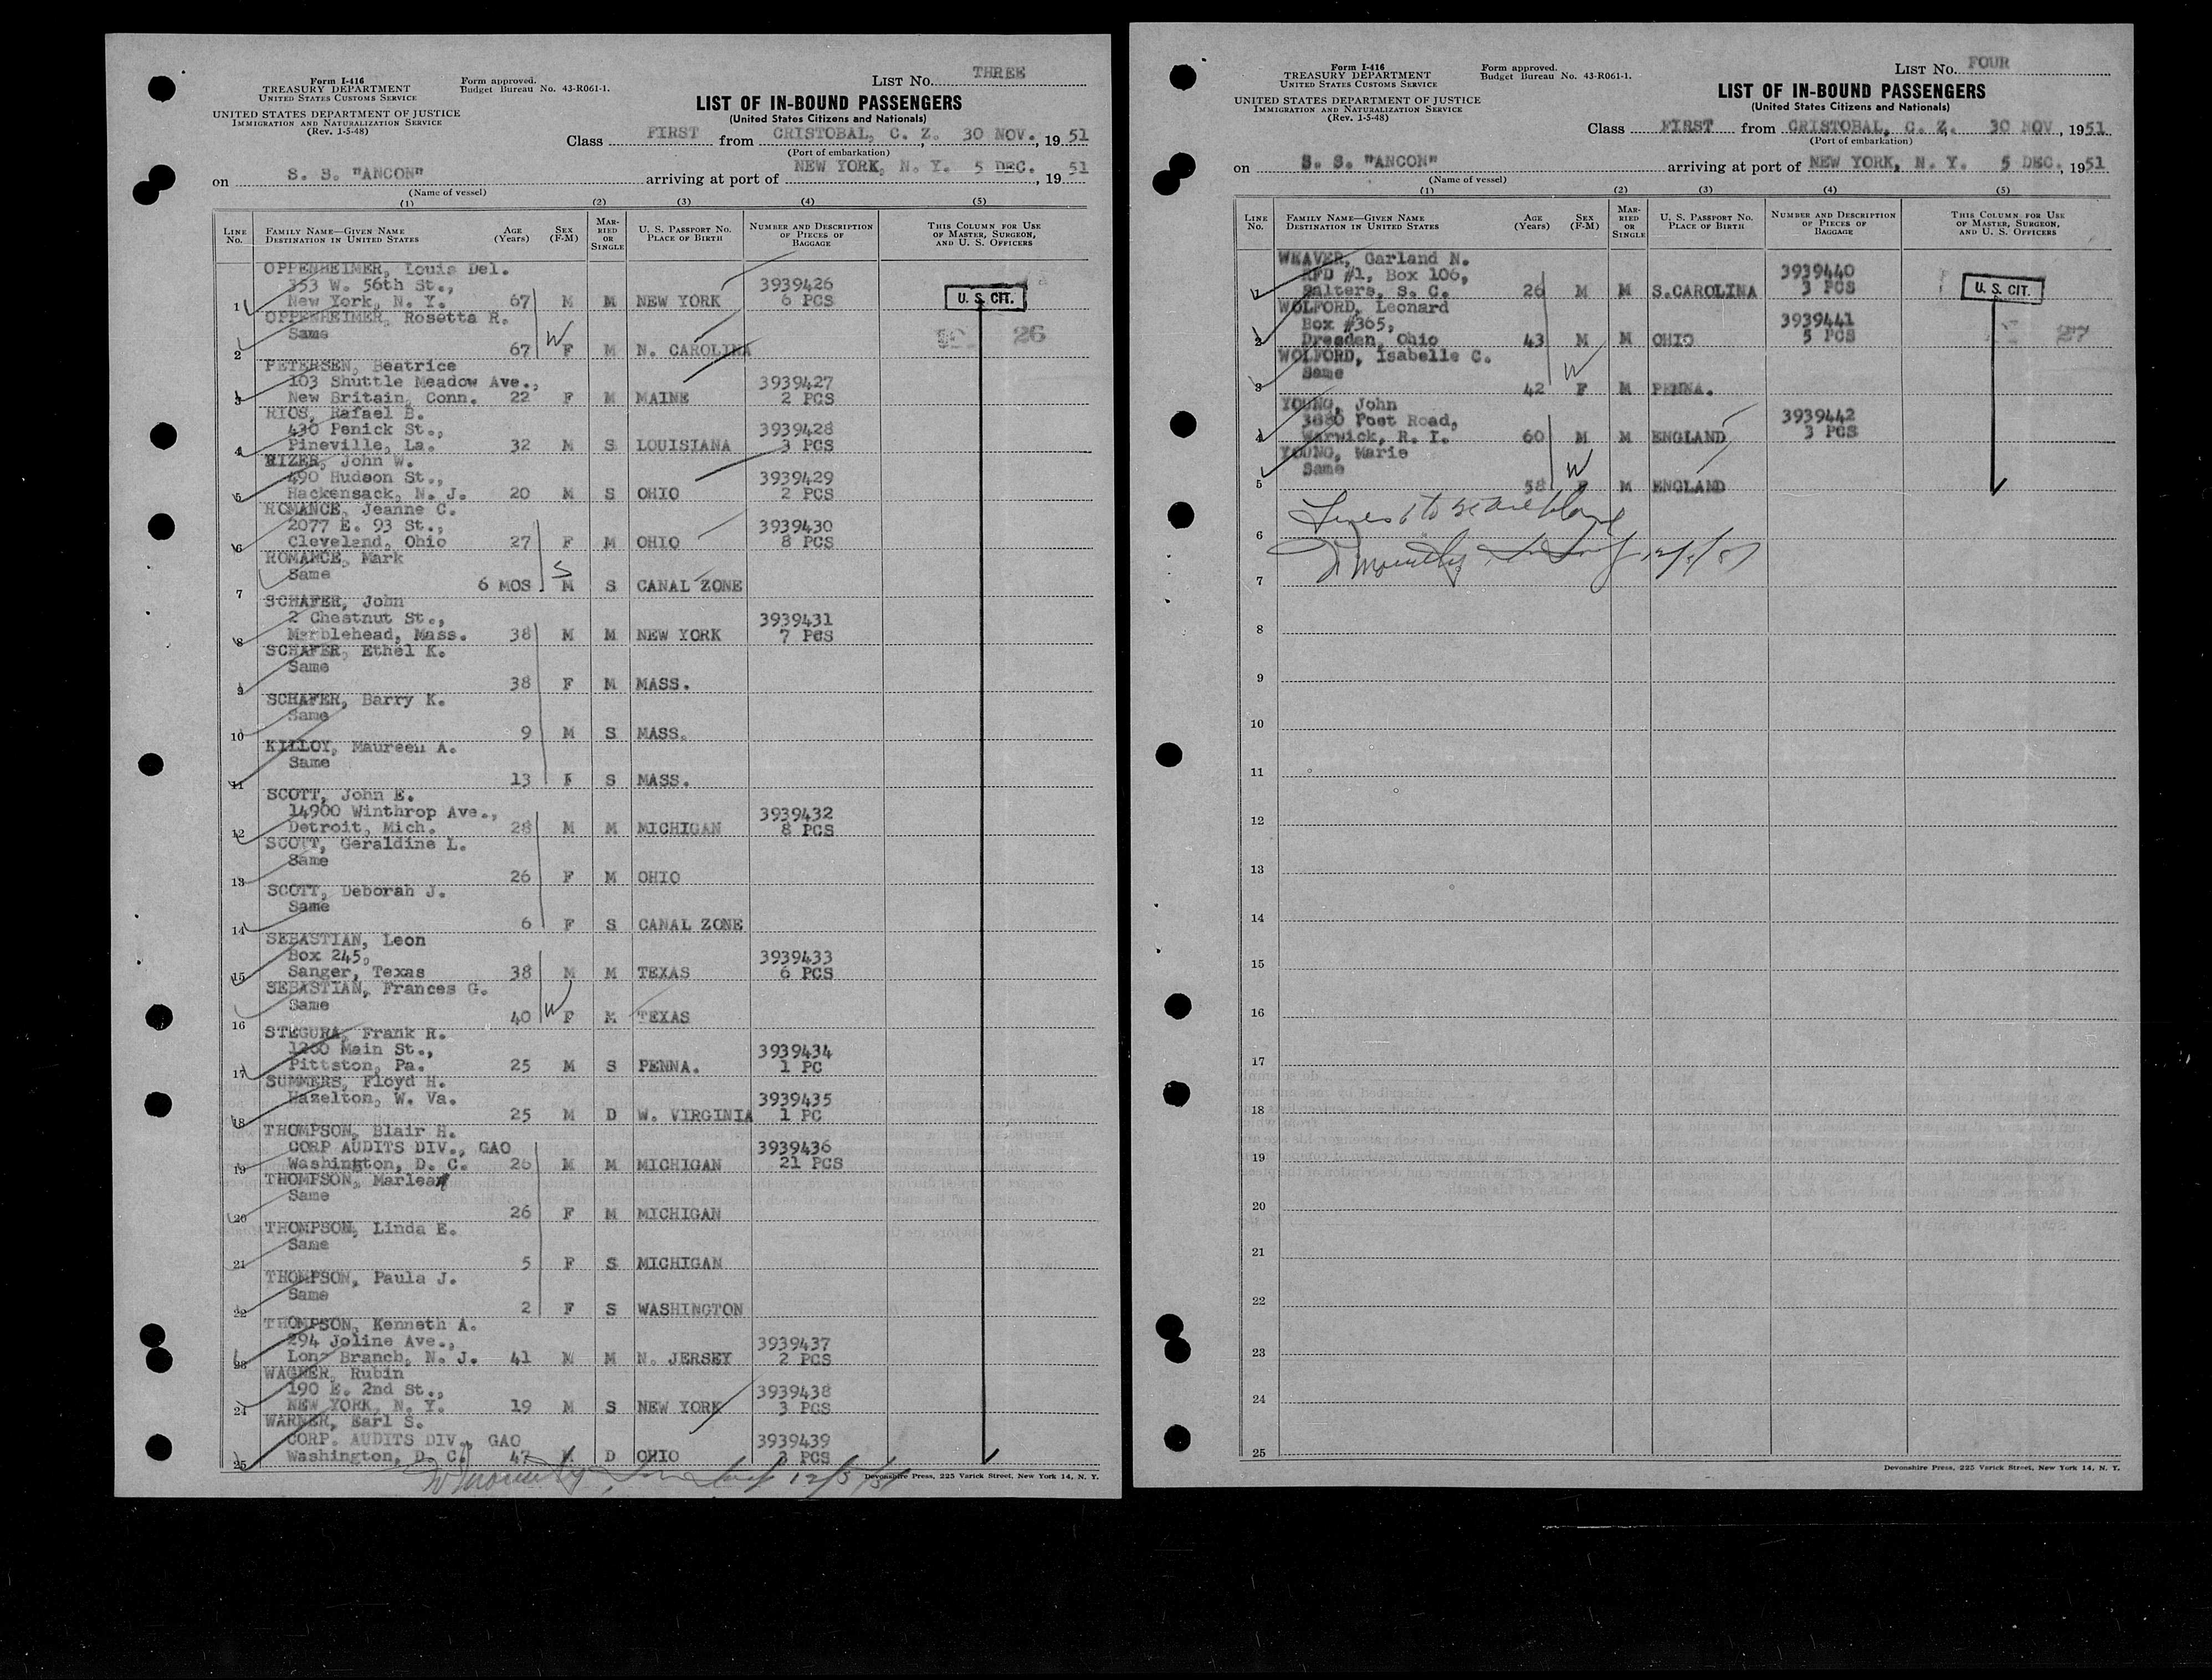 Form I-416
TREASURY DEPARTMENT
UNITED STATES CUSTOMS SERVICE
UNITED STATES DEPARTMENT OF JUSTICE
IMMIGRATION AND NATURALIZATION SERVICE
(Rev. 1-5-48)
Form approved.
Budget Bureau No. 43-R061-1.
LIST No. THREE
LIST OF IN-BOUND PASSENGERS
(United States Citizens and Nationals)
Class FIRST from CRISTOBAL, C. Z. 30 NOV., 1951
(Port of embarkation)
on S. S. "ANCON" arriving at port of NEW YORK, N. Y. 5 DEC., 1951
(Name of vessel)
(1) (2) (3) (4) (5)
LINE No. FAMILY NAME—GIVEN NAME DESTINATION IN UNITED STATES AGE (Years) SEX (F-M) MARRIED OR SINGLE U. S. PASSPORT NO. PLACE OF BIRTH NUMBER AND DESCRIPTION OF PIECES OF BAGGAGE THIS COLUMN FOR USE OF MASTER, SURGEON, AND U. S. OFFICERS
OPPENHEIMER, Louis Del.
353 W. 56th St., 3939426
1 New York, N. Y. 67 M M NEW YORK 6 PCS U. S. CIT.
OPPENHEIMER, Rosetta R.
Same W 26
2 67 F M N. CAROLINA
PETERSEN, Beatrice
103 Shuttle Meadow Ave., 3939427
3 New Britain, Conn. 22 F M MAINE 2 PCS
RIOS, Rafael B.
430 Penick St., 3939428
4 Pineville, La. 32 M S LOUISIANA 3 PCS
RIZER, John W.
490 Hudson St., 3939429
5 Hackensack, N. J. 20 M S OHIO 2 PCS
ROMANCE, Jeanne C.
2077 E. 93 St., 3939430
6 Cleveland, Ohio 27 F M OHIO 8 PCS
ROMANCE, Mark
Same S
7 6 MOS M S CANAL ZONE
SCHAFER, John
2 Chestnut St., 3939431
8 Marblehead, Mass. 38 M M NEW YORK 7 PCS
SCHAFER, Ethel K.
Same
9 38 F M MASS.
SCHAFER, Barry K.
Same
10 9 M S MASS.
KILLOY, Maureen A.
Same
11 13 F S MASS.
SCOTT, John E.
14900 Winthrop Ave., 3939432
12 Detroit, Mich. 28 M M MICHIGAN 8 PCS
SCOTT, Geraldine L.
Same
13 26 F M OHIO
SCOTT, Deborah J.
Same
14 6 F S CANAL ZONE
SEBASTIAN, Leon
Box 245, 3939433
15 Sanger, Texas 38 M M TEXAS 6 PCS
SEBASTIAN, Frances G.
Same W
16 40 F M TEXAS
STEGURA, Frank R.
1260 Main St., 3939434
17 Pittston, Pa. 25 M S PENNA. 1 PC
SUMMERS, Floyd H.
Hazelton, W. Va. 3939435
18 25 M D W. VIRGINIA 1 PC
THOMPSON, Blair H.
CORP AUDITS DIV., GAO 3939436
19 Washington, D. C. 26 M M MICHIGAN 21 PCS
THOMPSON, Marlea
Same
20 26 F M MICHIGAN
THOMPSON, Linda E.
Same
21 5 F S MICHIGAN
THOMPSON, Paula J.
Same
22 2 F S WASHINGTON
THOMPSON, Kenneth A.
294 Joline Ave., 3939437
23 Long Branch, N. J. 41 M M N. JERSEY 2 PCS
WAGNER, Rubin
190 E. 2nd St., 3939438
24 NEW YORK, N. Y. 19 M S NEW YORK 3 PCS
WARNER, Earl S.
CORP. AUDITS DIV., GAO 3939439
25 Washington, D. C. 47 M D OHIO 3 PCS
12/5/51
Devonshire Press, 225 Varick Street, New York 14, N. Y.
Form I-416
TREASURY DEPARTMENT
UNITED STATES CUSTOMS SERVICE
UNITED STATES DEPARTMENT OF JUSTICE
IMMIGRATION AND NATURALIZATION SERVICE
(Rev. 1-5-48)
Form approved.
Budget Bureau No. 43-R061-1.
LIST No. FOUR
LIST OF IN-BOUND PASSENGERS
(United States Citizens and Nationals)
Class FIRST from CRISTOBAL, C. Z. 30 NOV, 1951
(Port of embarkation)
on S. S. "ANCON" arriving at port of NEW YORK, N. Y. 5 DEC., 1951
(Name of vessel)
(1) (2) (3) (4) (5)
LINE No. FAMILY NAME—GIVEN NAME DESTINATION IN UNITED STATES AGE (Years) SEX (F-M) MARRIED OR SINGLE U. S. PASSPORT NO. PLACE OF BIRTH NUMBER AND DESCRIPTION OF PIECES OF BAGGAGE THIS COLUMN FOR USE OF MASTER, SURGEON, AND U. S. OFFICERS
WEAVER, Garland N.
RFD #1, Box 106, 3939440
1 Salters, S. C. 26 M M S.CAROLINA 3 PCS U. S. CIT.
WOLFORD, Leonard
Box #365, 3939441
2 Dresden, Ohio 43 M M OHIO 5 PCS 27
WOLFORD, Isabelle C.
Same W
3 42 F M PENNA.
YOUNG, John
3680 Post Road, 3939442
4 Warwick, R. I. 60 M M ENGLAND 3 PCS
YOUNG, Marie
Same W
5 58 F M ENGLAND
Lines 6 to 25
6
12/5/51
7
8
9
10
11
12
13
14
15
16
17
18
19
20
21
22
23
24
25
Devonshire Press, 225 Varick Street, New York 14, N. Y.